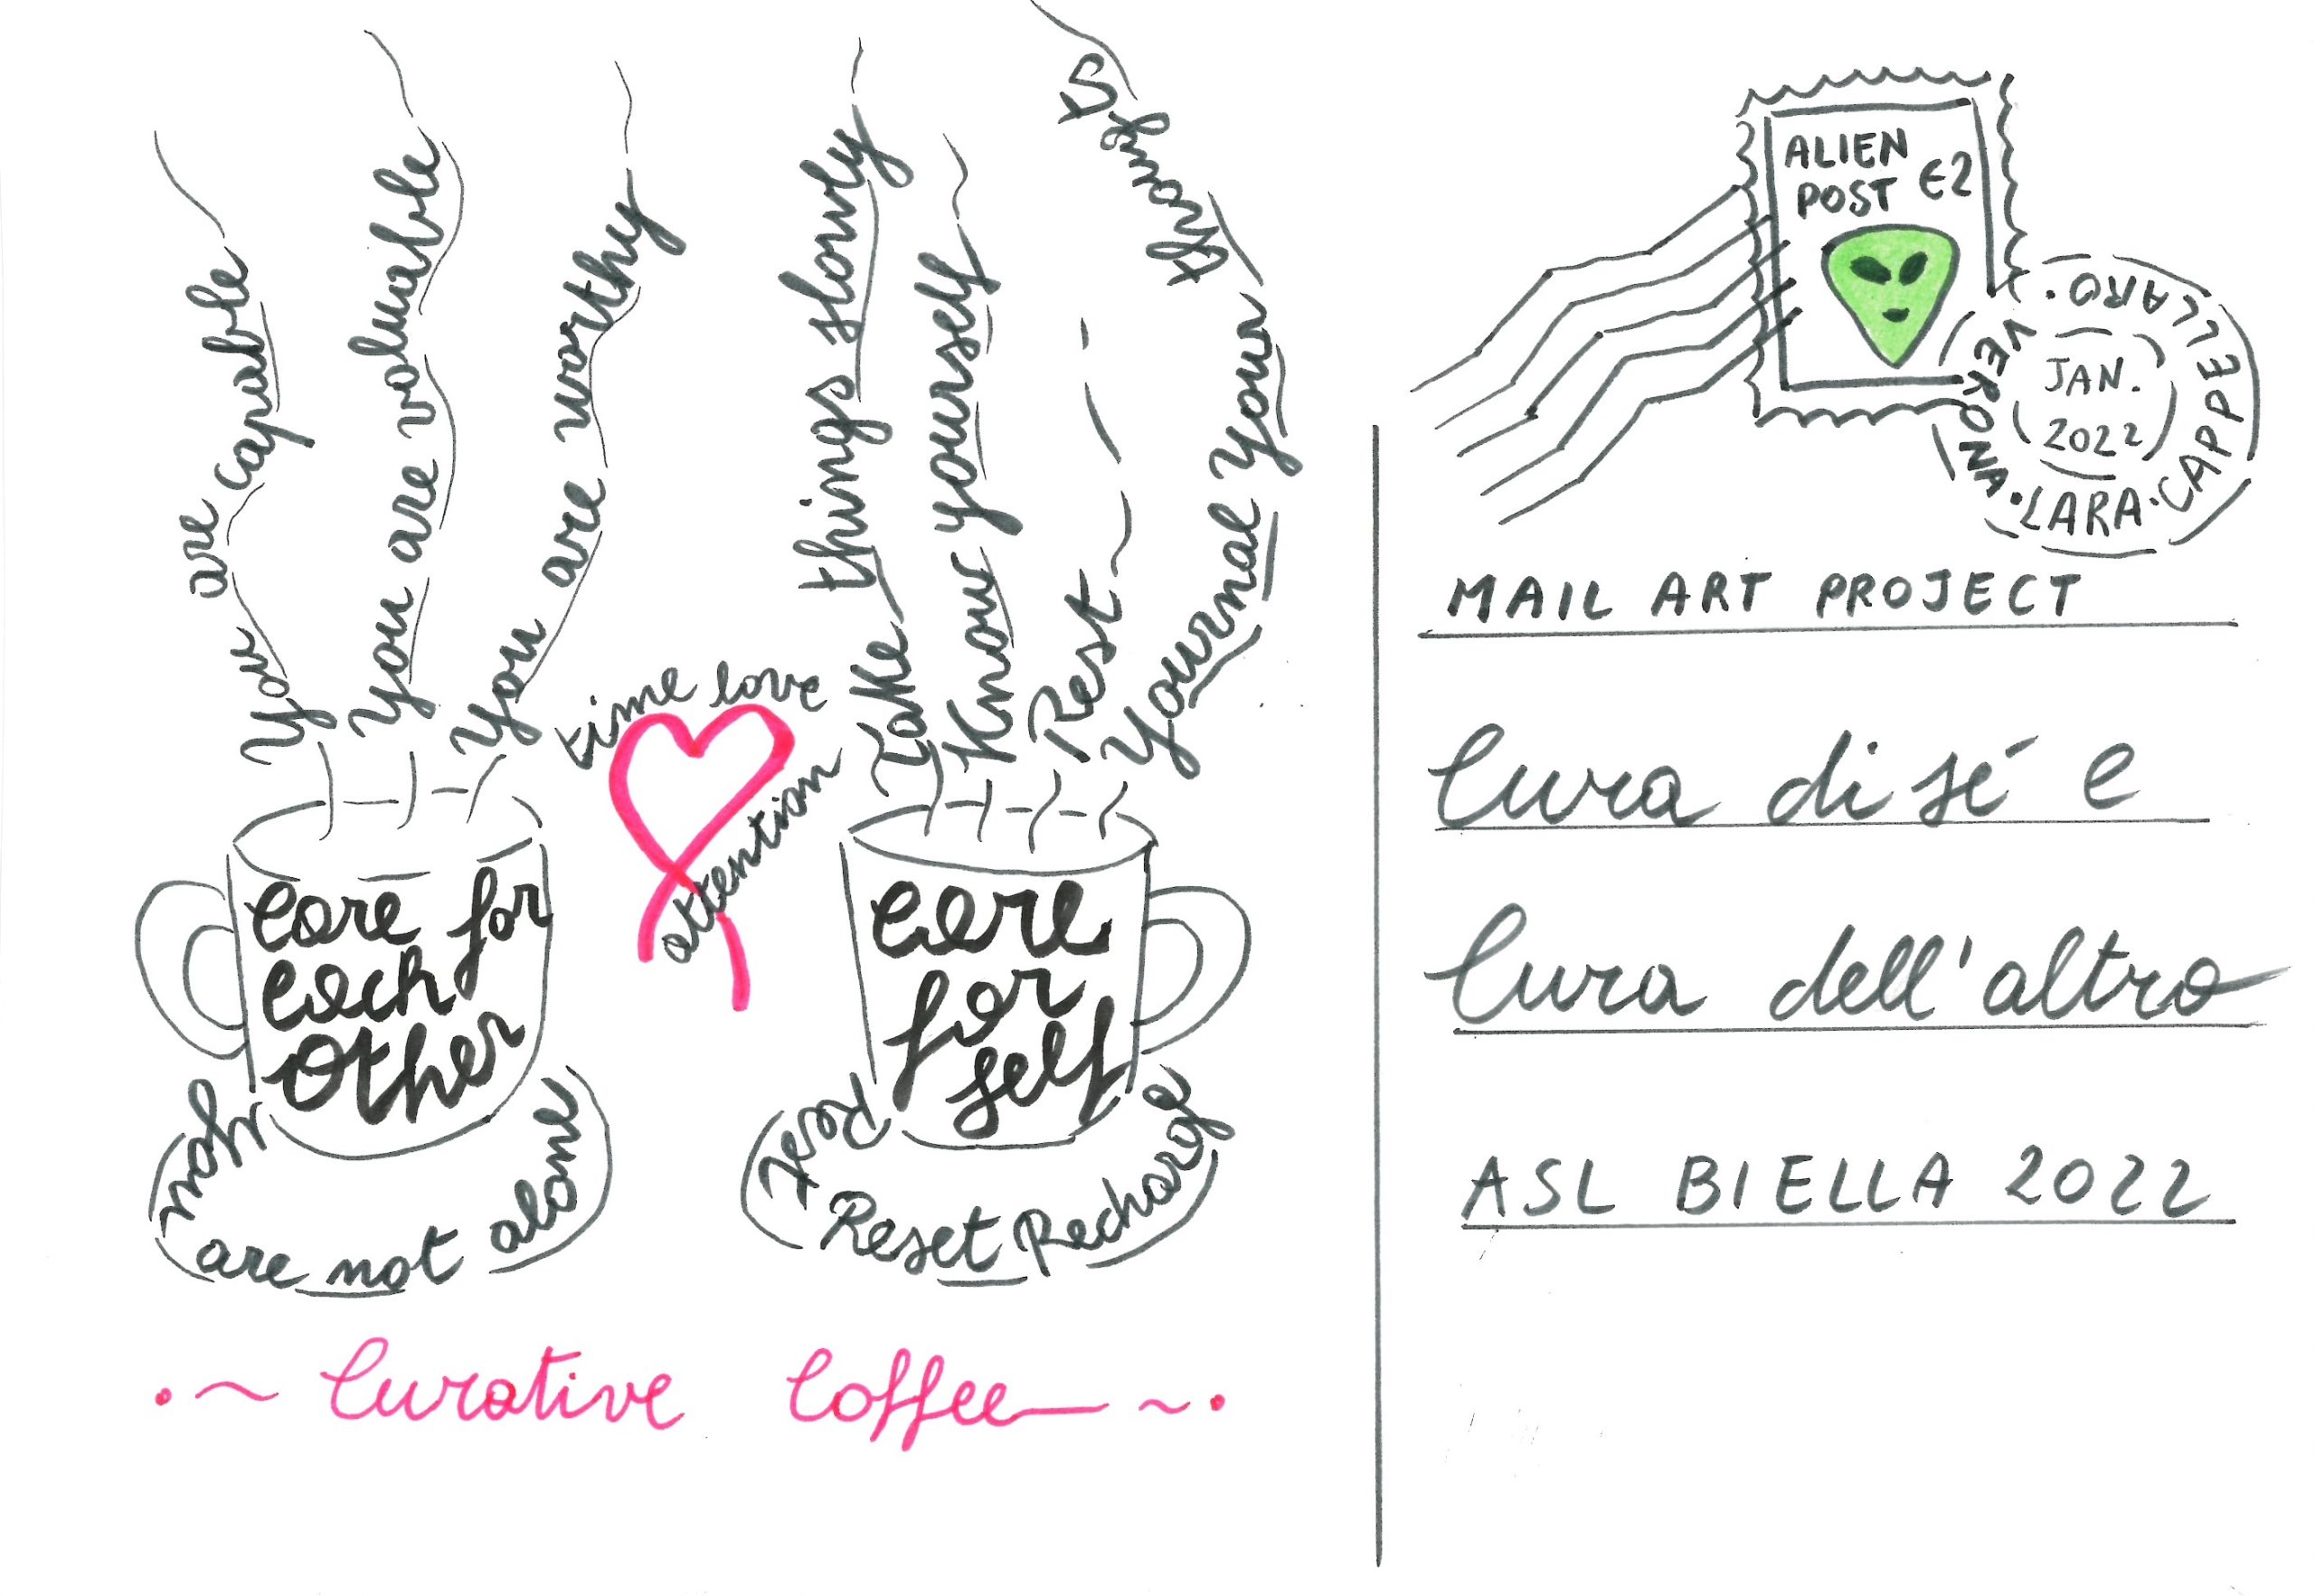 You are capable
You are valuable
You are worthy
Take things slowly
Know yourself
Rest
Yournal your
thoughts
time love
attention
Care for
each
other
Care
for
self
you
are not alone
Rest
Reset Recharge
Curative Coffee
ALIEN
POST €2
VERONA · LARA · CAPPELLARO ·
JAN.
2022
MAIL ART PROJECT
Cura di sé e
Cura dell'altro
ASL BIELLA 2022